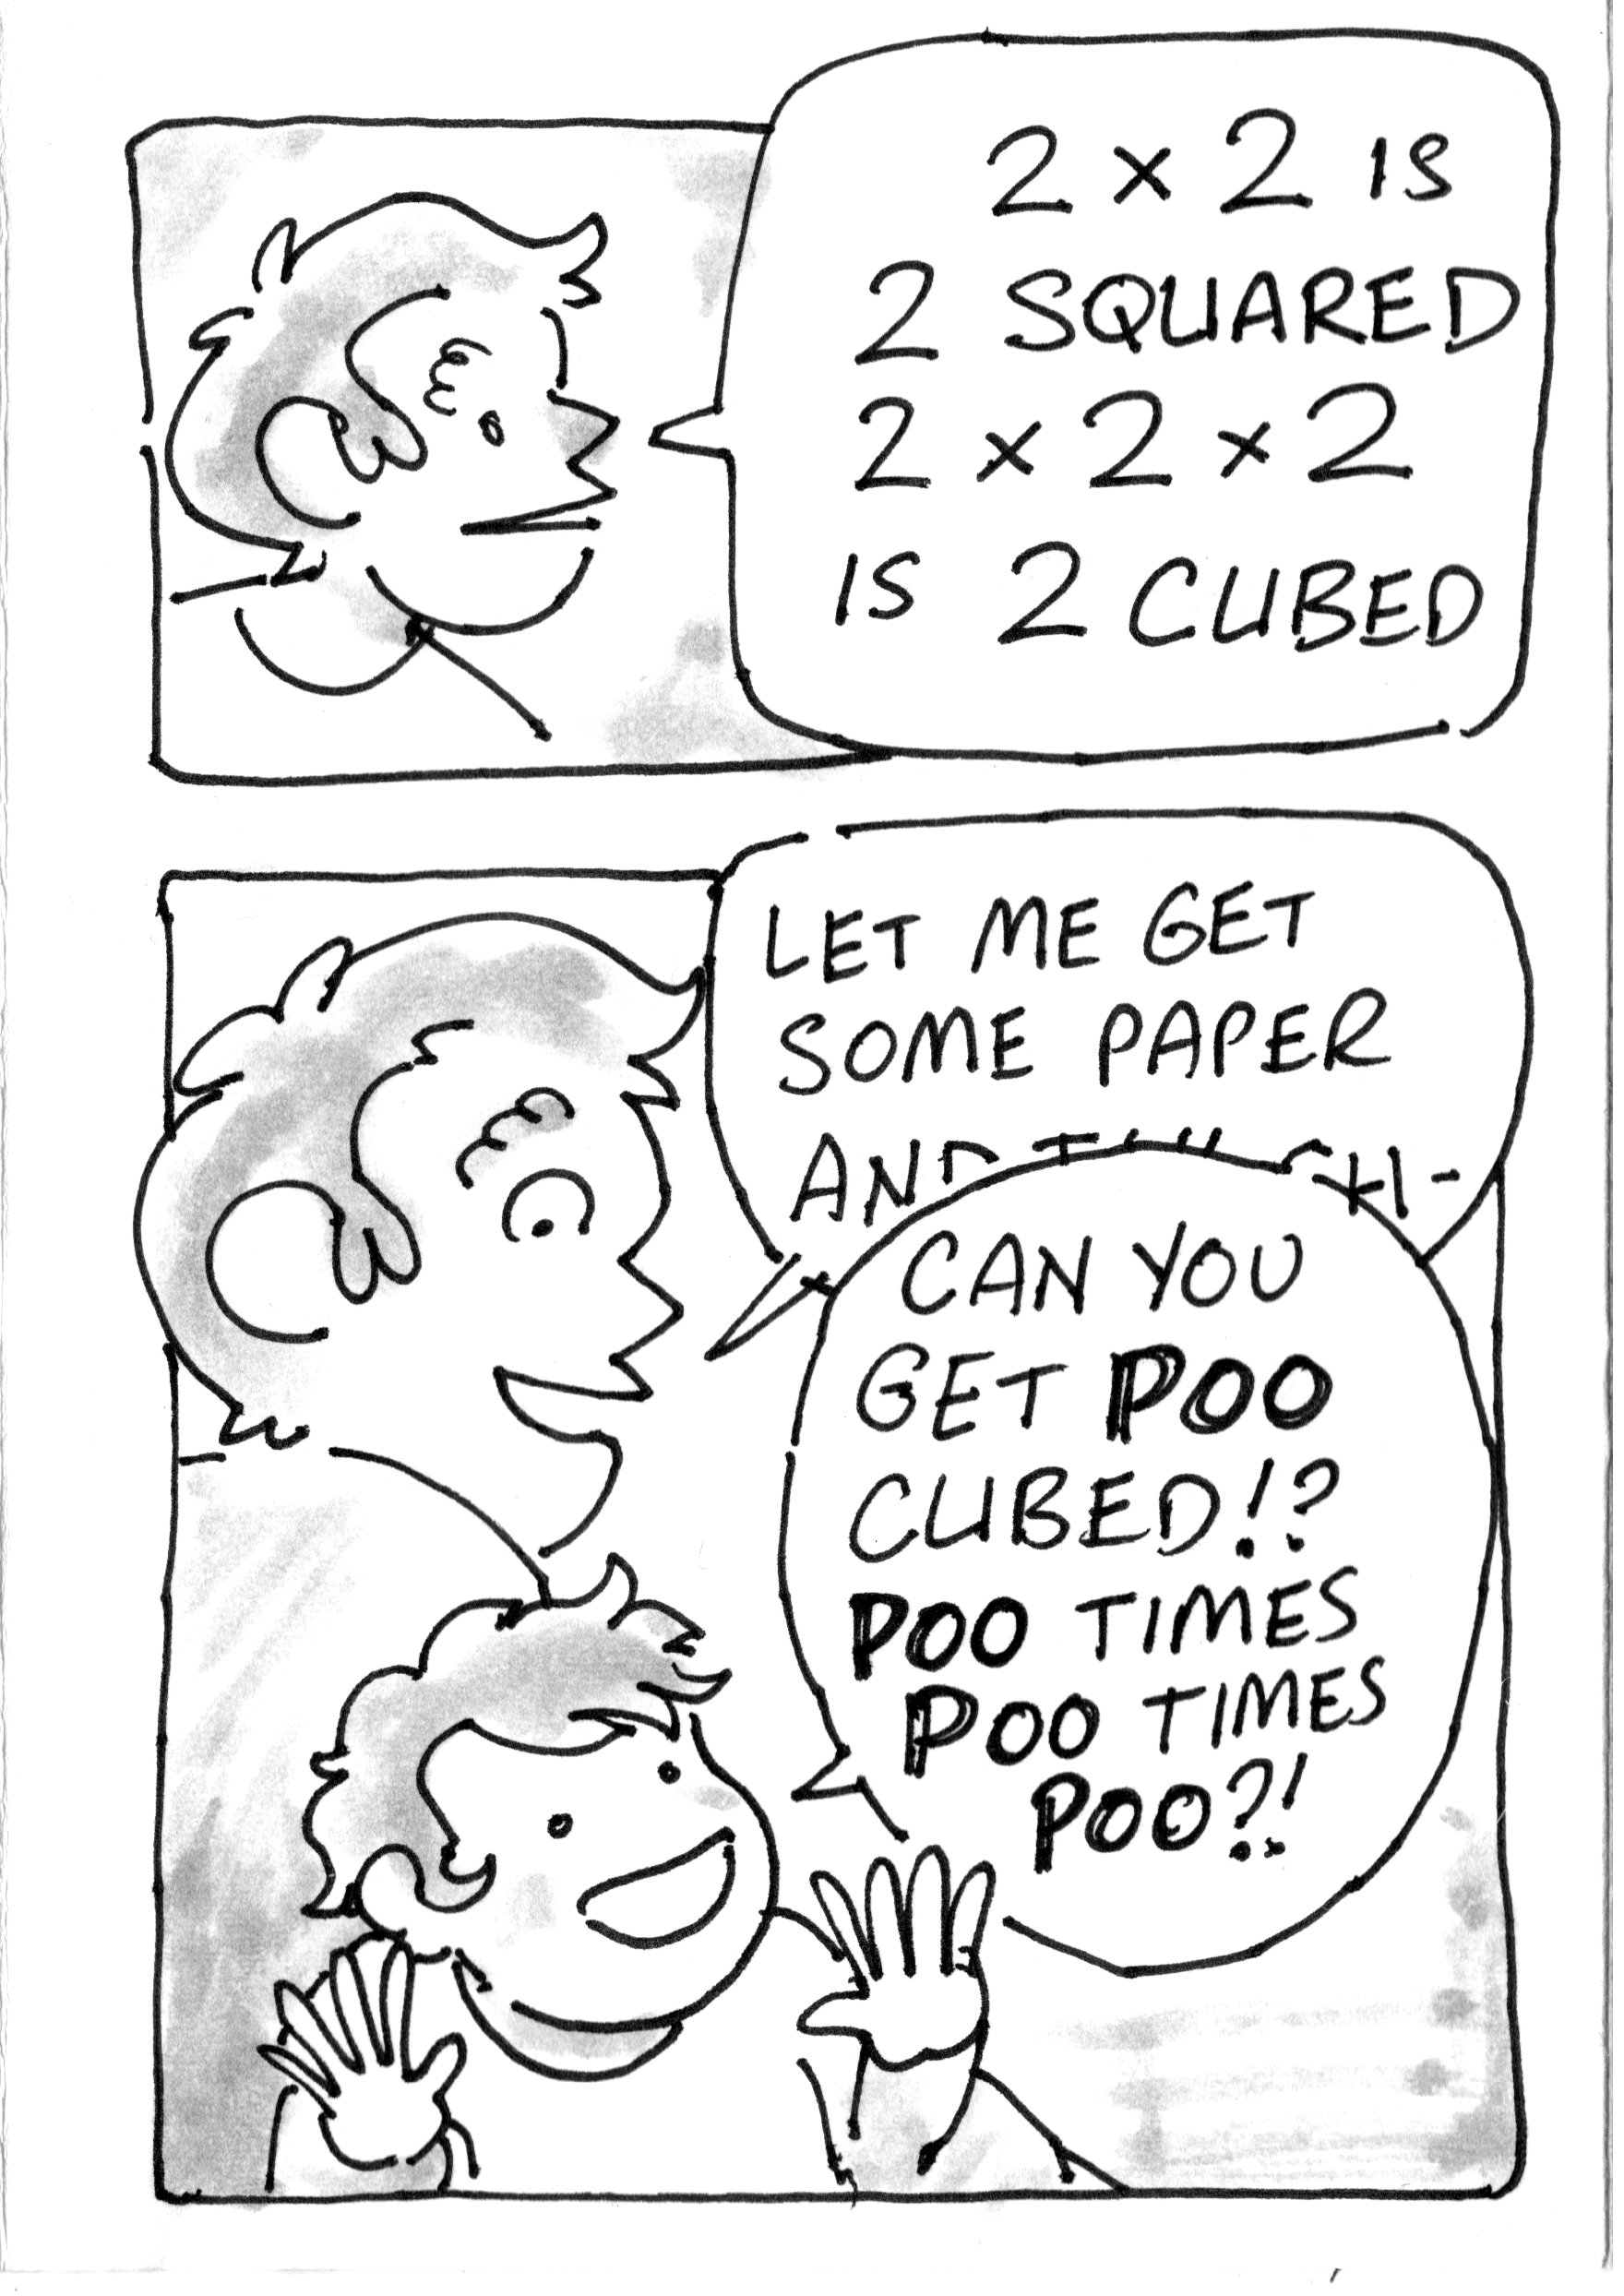 2 × 2 IS
2 SQUARED
2 × 2 × 2
IS 2 CUBED
LET ME GET
SOME PAPER
AND
CAN YOU
GET POO
CUBED!?
POO TIMES
POO TIMES
POO?!